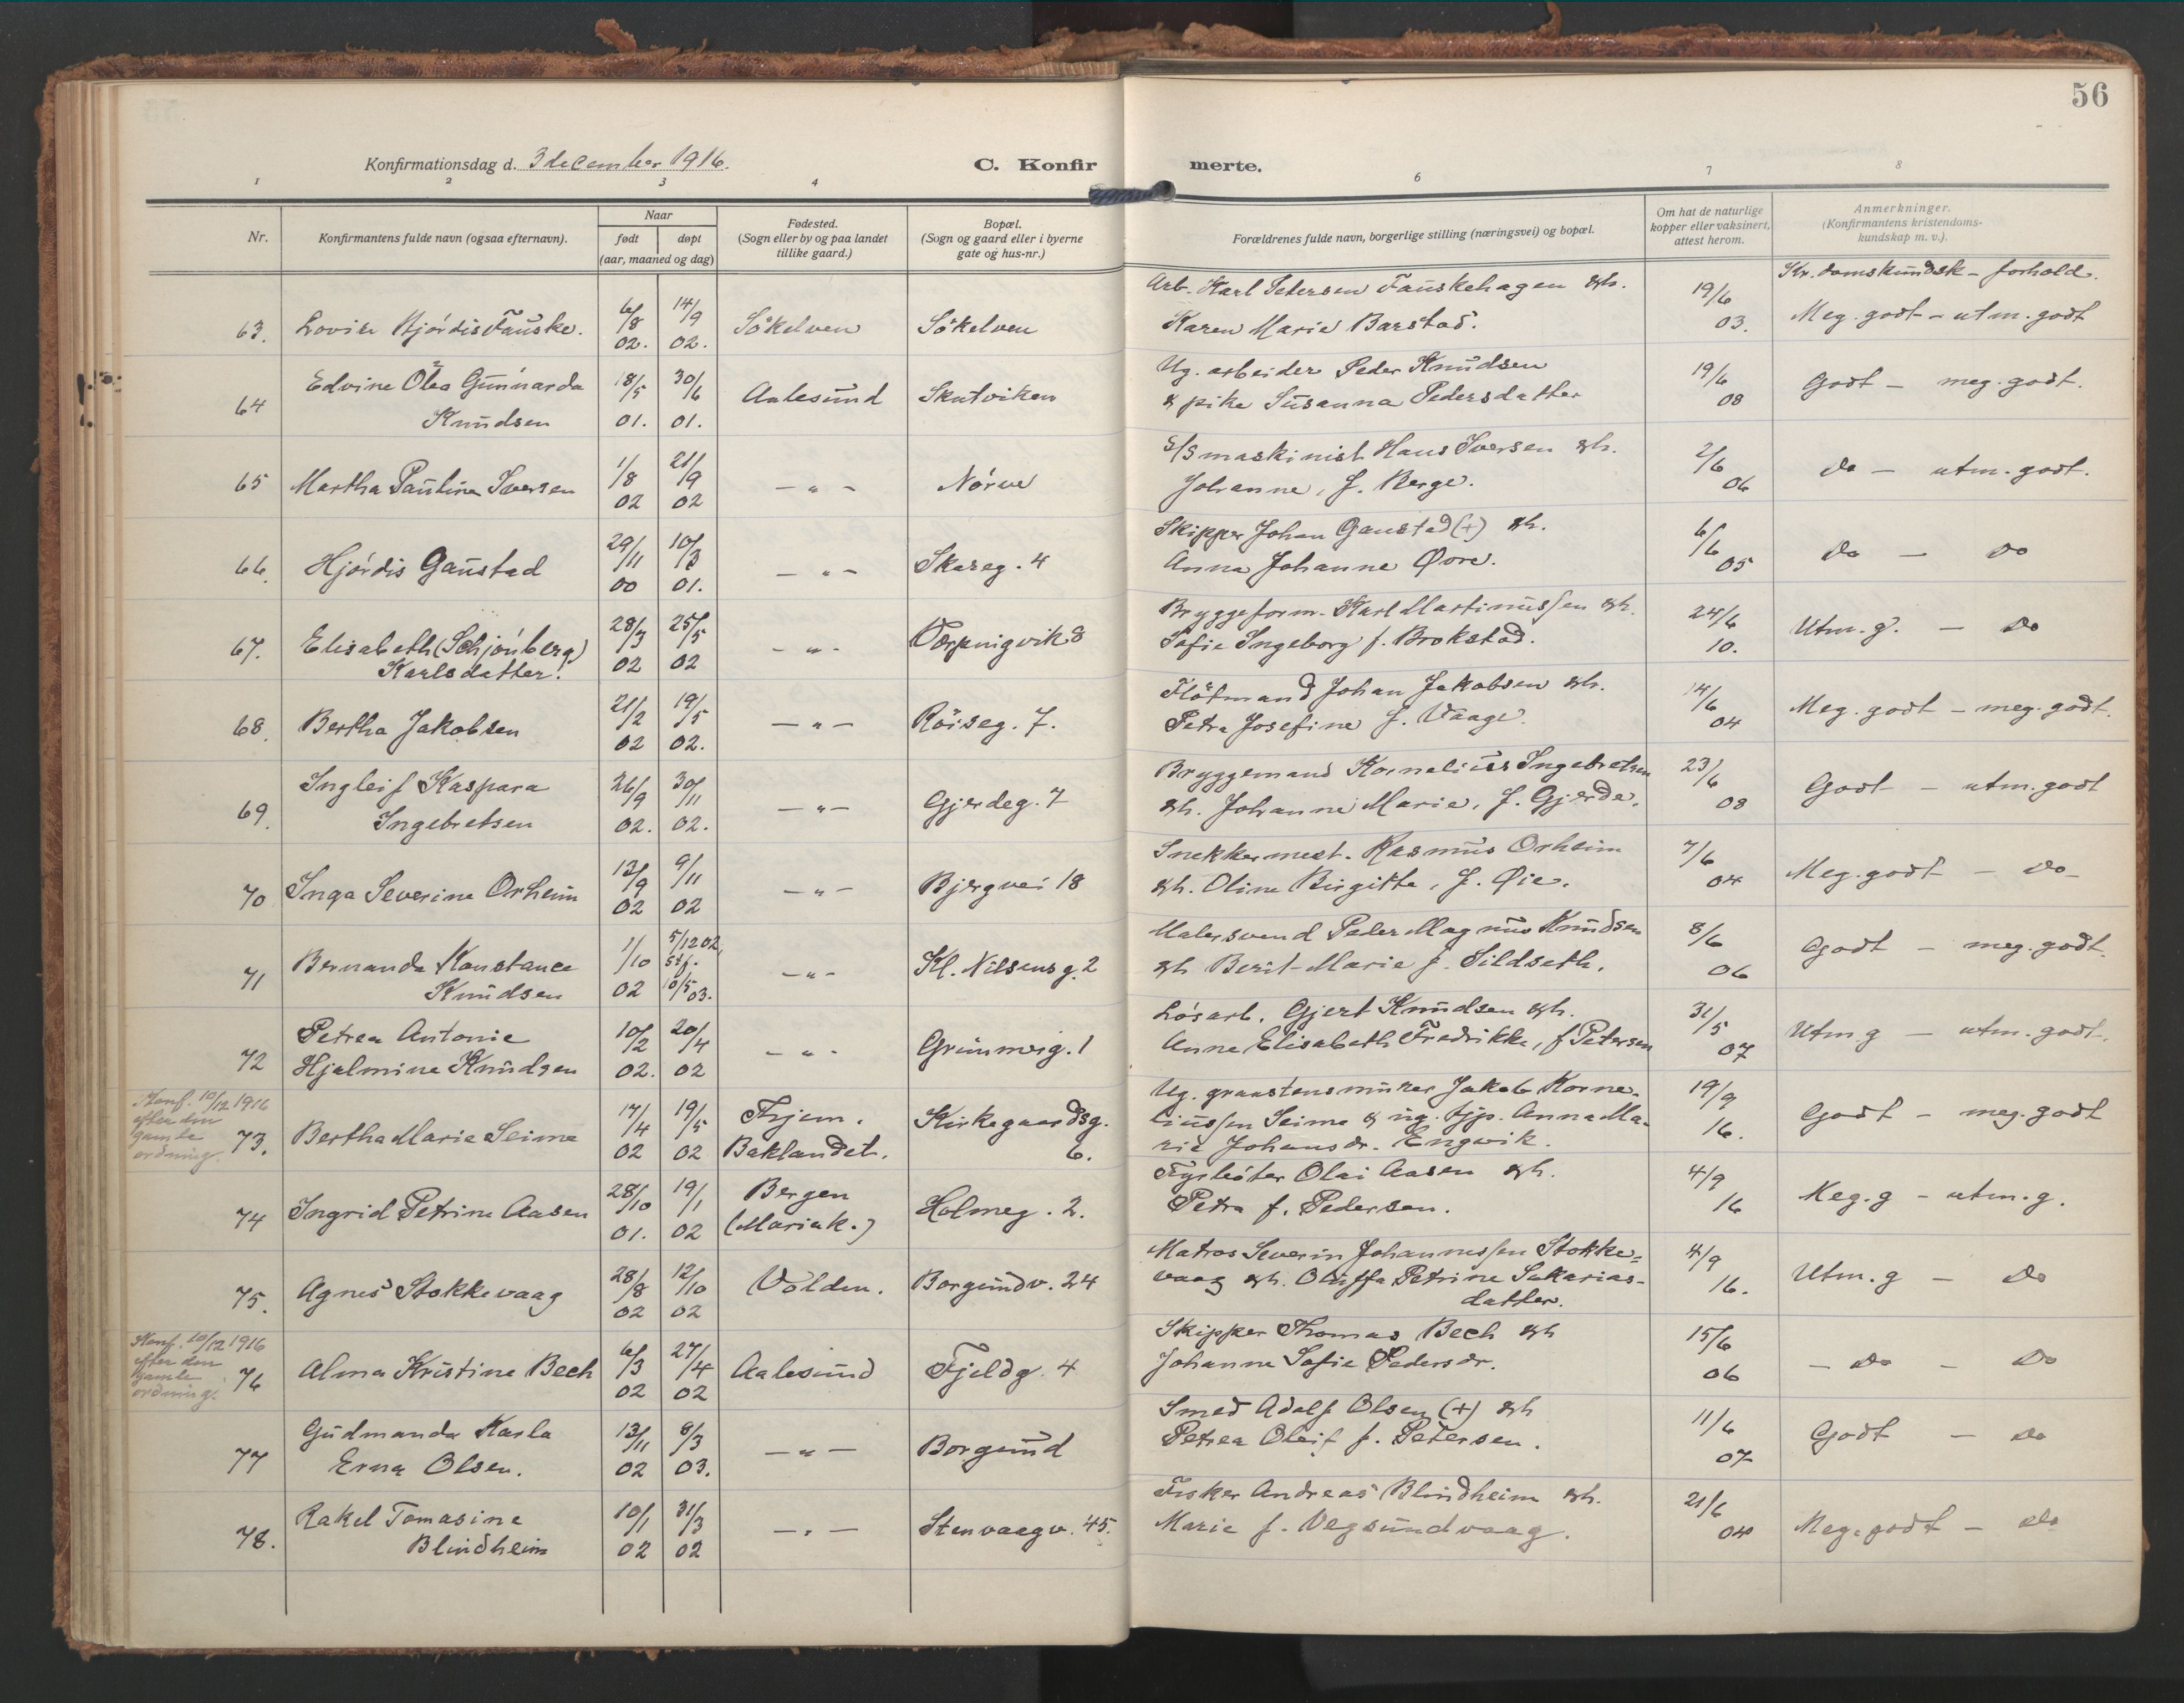 56
Konfirmationsdag d. 3 december 1916.
C. Konfirmerte.
1 2 3 4 6 7 8
Nr.
Konfirmantens fulde navn (ogsaa efternavn).
Naar
født døpt
(aar, maaned og dag)
Fødested.
(Sogn eller by og paa landet
tillike gaard.)
Bopæl.
(Sogn og gaard eller i byerne
gate og hus-nr.)
Forældrenes fulde navn, borgerlige stilling (næringsvei) og bopæl.
Om hat de naturlige
kopper eller vaksinert,
attest herom.
Anmerkninger.
(Konfirmantens kristendoms-
kundskap m. v.).
Kr.domskundsk – forhold.
63. Lovise Hjördis Fauske. 6/8 02. 14/9 02. Sökelven Sökelven
Arb. Karl Petersen Fauskehagen & h.
Karen Marie Barstad.
19/6 03. Meg. godt – utm. godt
64 Edvine Olea Gunnarda
Knudsen 18/5 01. 30/6 01. Aalesund Skutviken
Ug. arbeider Peder Knudsen
& pike Susanna Pedersdatter
19/6 08 Godt – meg. godt.
65 Martha Paulina Iversen 1/8 02 21/9 02 – " – Nörve
S/S maskinist Hans Iversen & h.
Johanne, f. Berge.
2/6 06 do – utm. godt.
66. Hjördis Gaustad 29/11 00 10/3 01. – " – Skareg. 4
Skipper Johan Gaustad (+) & h.
Anna Johanne Øvre.
6/6 05 do – do
67. Elisabeth (Schjönberg)
Karlsdatter. 28/3 02 25/5 02 – " – Tørpingvik 8
Bryggeform. Karl Martinussen & h.
Sofie Ingeborg f. Brokstad.
24/6 10. Utm. g. – do
68. Bertha Jakobsen 21/2 02 19/5 02. – " – Röiseg. 7.
Flötmand Johan Jakobsen & h.
Petra Josefine f. Vaage.
14/6 04 Meg. godt – meg. godt.
69. Ingleif Kaspara
Ingebretsen 26/9 02. 30/11 02. – " – Gjerdeg. 7
Bryggemand Kornelius Ingebretsen
& h. Johanne Marie, f. Gjerde.
23/6 08 Godt – utm. godt
70 Inga Severine Orheim 13/9 02 9/11 02 – " – Bjergvei 18
Snekkermest. Rasmus Orheim
& h. Oline Birgitte, f. Øie.
7/6 04 Meg. godt – do –
71 Bernanda Konstance
Knudsen 1/10 02 5/12 02, stf. 10/5 03. – " – Kl. Nilsens g. 2
Malersvend Peder Magnus Knudsen
& h Berit-Marie f. Sildseth.
8/6 06 Godt – meg. godt.
72 Petrea Antonie
Hjalmine Knudsen 10/2 02. 20/4 02 – " – Grimmerg. 1
Løsarb. Gjert Knudsen & h.
Anne Elisabeth Fredrikke, f Petersen
31/5 07 Utm. g – utm. godt.
Konf. 10/12 1916
efter den
gamle
ordning.
73. Bertha Marie Seime 17/4 02 19/5 02 Thjem.
Baklandet. Kirkegaardsg.
6.
Ug. graastensmurer Jakob Korne-
liussen Seime & ug. tjp. Anna Ma-
rie Johansdr. Engvik.
19/9 16. Godt – meg. godt
74 Ingrid Petrine Aasen 28/10 01. 19/1 02 Bergen
(Mariak.) Holmeg. 2.
Fyrböter Olai Aasen & h.
Petra f. Pedersen.
4/9 16 Meg. g – utm. g.
75. Agnes Stokkevaag 28/8 02 12/10 02 Volden. Borgundv. 24
Matros Severin Johannessen Stokke-
vaag & h. Oluffa Petrine Sakarias-
datter.
4/9 16. Utm. g – do
Konf. 10/12 1916
efter den
gamle
ordning.
76 Alma Kristine Bech 6/3 02 27/4 02 Aalesund Fjeldg. 4
Skipper Thomas Bech & h
Johanne Sofie Pedersdr.
15/6 06 – do – do
77 Gudmanda Karla
Erna Olsen. 13/11 02 8/3 03. – " – Borgund
Smed Adolf Olsen (+) & h
Petrea Oleif f. Petersen.
11/6 07 Godt – do
78. Rakel Tomasine
Blindheim 10/1 02 31/3 02 – " – Stenvaagv. 45.
Fisker Andreas Blindheim & h.
Marie f. Vegsundvaag.
21/6 04 Meg. godt – do